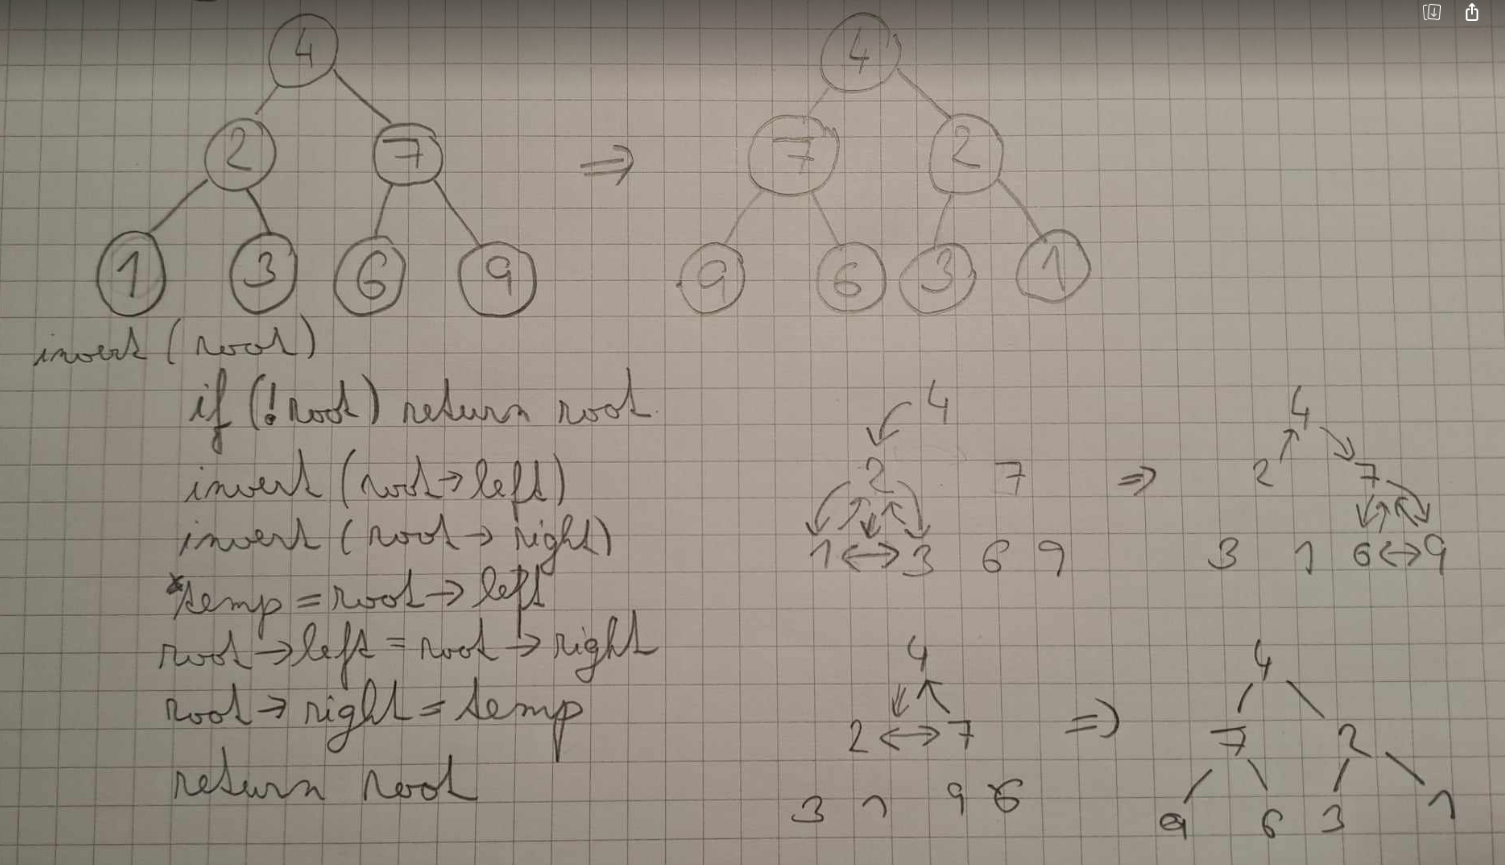 4 4
2 7 ⇒ 7 2
1 3 6 9 9 6 3 1
invert (root)
if (!root) return root
invert (root→left)
invert (root→right)
*temp = root→left
root→left = root→right
root→right = temp
return root
4 4
2 7 ⇒ 2 7
1 ↔ 3 6 9 3 1 6 ↔ 9
4 4
2 ↔ 7 ⇒ 7 2
3 1 9 6 9 6 3 1